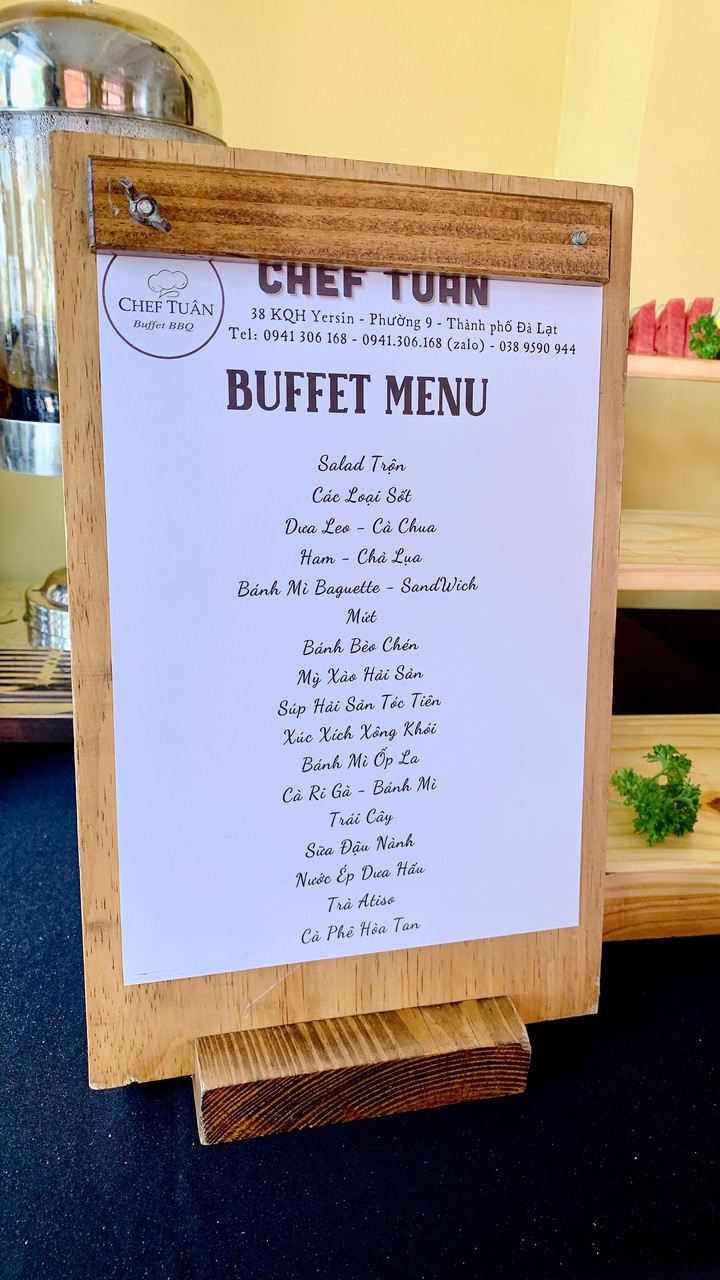 CHEF TUÂN
Buffet BBQ
CHEF TUÂN
38 KQH Yersin - Phường 9 - Thành phố Đà Lạt
Tel: 0941 306 168 - 0941.306.168 (zalo) - 038 9590 944
BUFFET MENU
Salad Trộn
Các Loại Sốt
Dưa Leo - Cà Chua
Ham - Chả Lụa
Bánh Mì Baguette - SandWich
Mứt
Bánh Bèo Chén
Mỳ Xào Hải Sản
Súp Hải Sản Tóc Tiên
Xúc Xích Xông Khói
Bánh Mì Ốp La
Cà Ri Gà - Bánh Mì
Trái Cây
Sữa Đậu Nành
Nước Ép Dưa Hấu
Trà Atiso
Cà Phê Hòa Tan